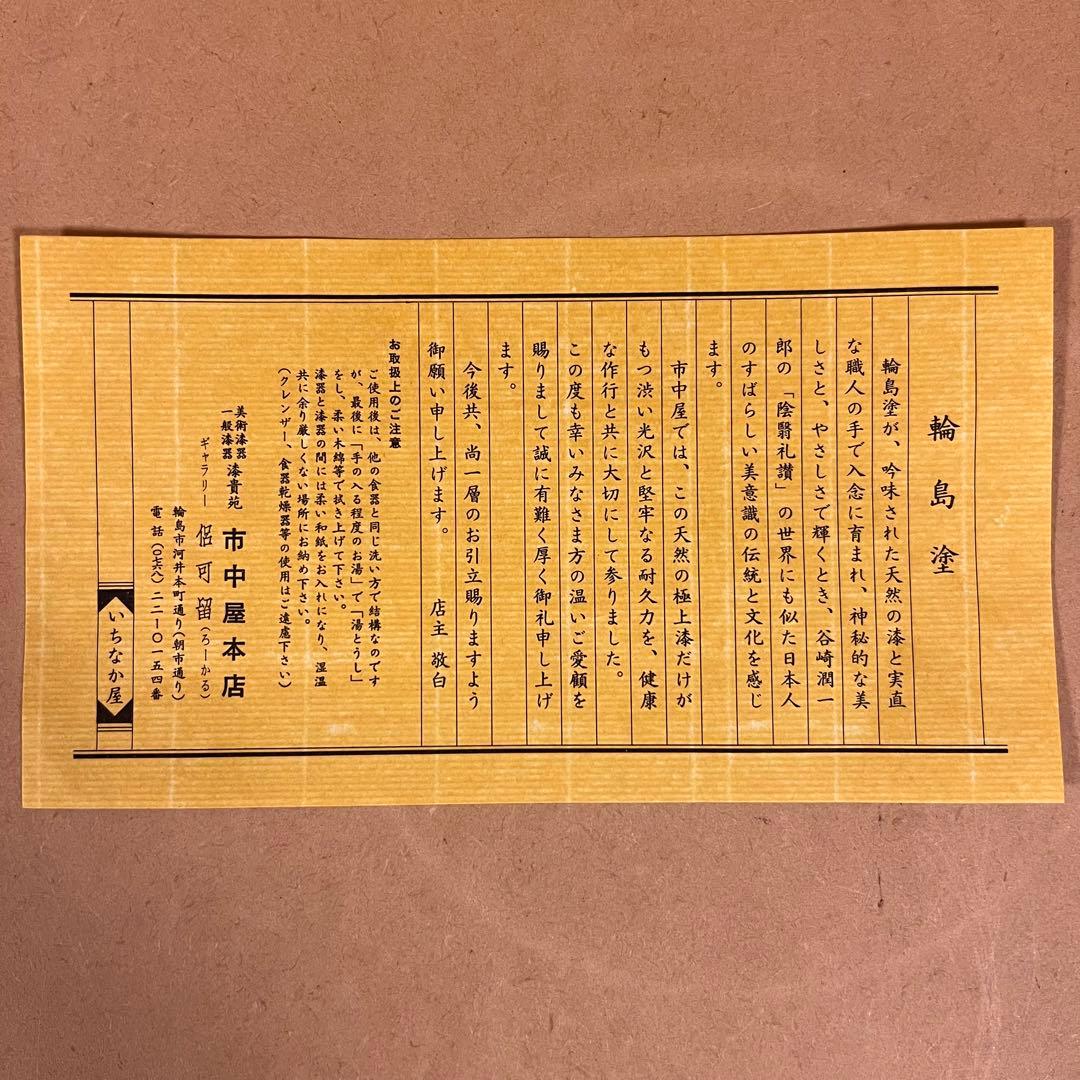 輪島塗
輪島塗が、吟味された天然の漆と実直
な職人の手で入念に育まれ、神秘的な美
しさと、やさしさで輝くとき、谷崎潤一
郎の「陰翳礼讃」の世界にも似た日本人
のすばらしい美意識の伝統と文化を感じ
ます。
市中屋では、この天然の極上漆だけが
もつ渋い光沢と堅牢なる耐久力を、健康
な作行と共に大切にして参りました。
この度も幸いみなさま方の温いご愛顧を
賜りまして誠に有難く厚く御礼申し上げ
ます。
今後共、尚一層のお引立賜りますよう
御願い申し上げます。 店主 敬白
お取扱上のご注意
ご使用後は、他の食器と同じ洗い方で結構なのです
が、最後に「手の入る程度のお湯」で「湯とうし」
をし、柔い木綿等で拭き上げて下さい。
漆器と漆器の間には柔い和紙をお入れになり、湿温
共に余り厳しくない場所にお納め下さい。
(クレンザー、食器乾燥器等の使用はご遠慮下さい)
美術漆器
一般漆器 漆貴苑 市中屋本店
ギャラリー 侶可留(ろーかる)
輪島市河井本町通り(朝市通り)
電話(〇七六八)二二ー〇一五四番
いちなか屋